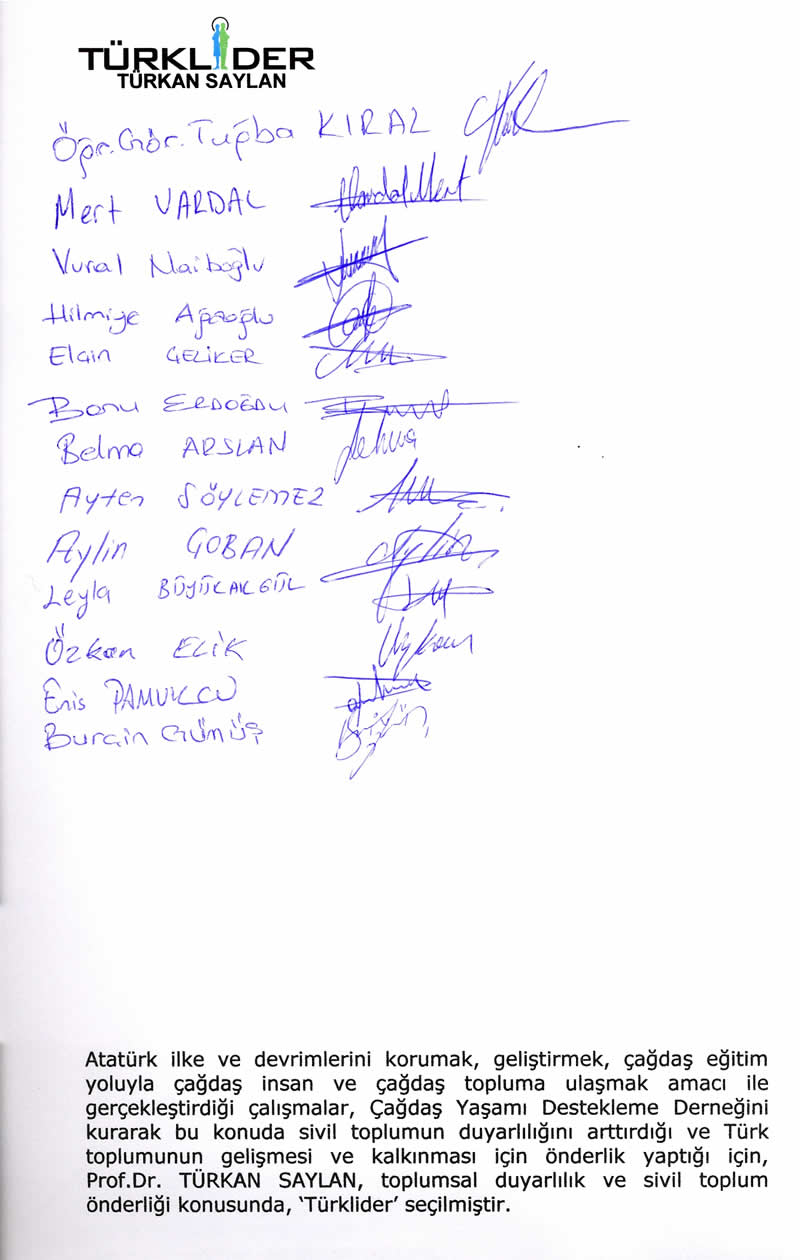 TÜRKLİDER
TÜRKAN SAYLAN
Öğr.Gör.Tuğba KIRAL
Mert VARDAL Vardal Mert
Vural Naiboğlu
Hilmiye Ağaoğlu
Elçin GELİKER
Banu ERDOĞDU
Belma ARSLAN Belma
Ayten SÖYLEMEZ
Aylin ÇOBAN Aylin
Leyla BÜYÜKAKGÜL
Özkan ELİK
Enis PAMUKÇU
Burçin Gümüş
Atatürk ilke ve devrimlerini korumak, geliştirmek, çağdaş eğitim
yoluyla çağdaş insan ve çağdaş topluma ulaşmak amacı ile
gerçekleştirdiği çalışmalar, Çağdaş Yaşamı Destekleme Derneğini
kurarak bu konuda sivil toplumun duyarlılığını arttırdığı ve Türk
toplumunun gelişmesi ve kalkınması için önderlik yaptığı için,
Prof.Dr. TÜRKAN SAYLAN, toplumsal duyarlılık ve sivil toplum
önderliği konusunda, ‘Türklider’ seçilmiştir.